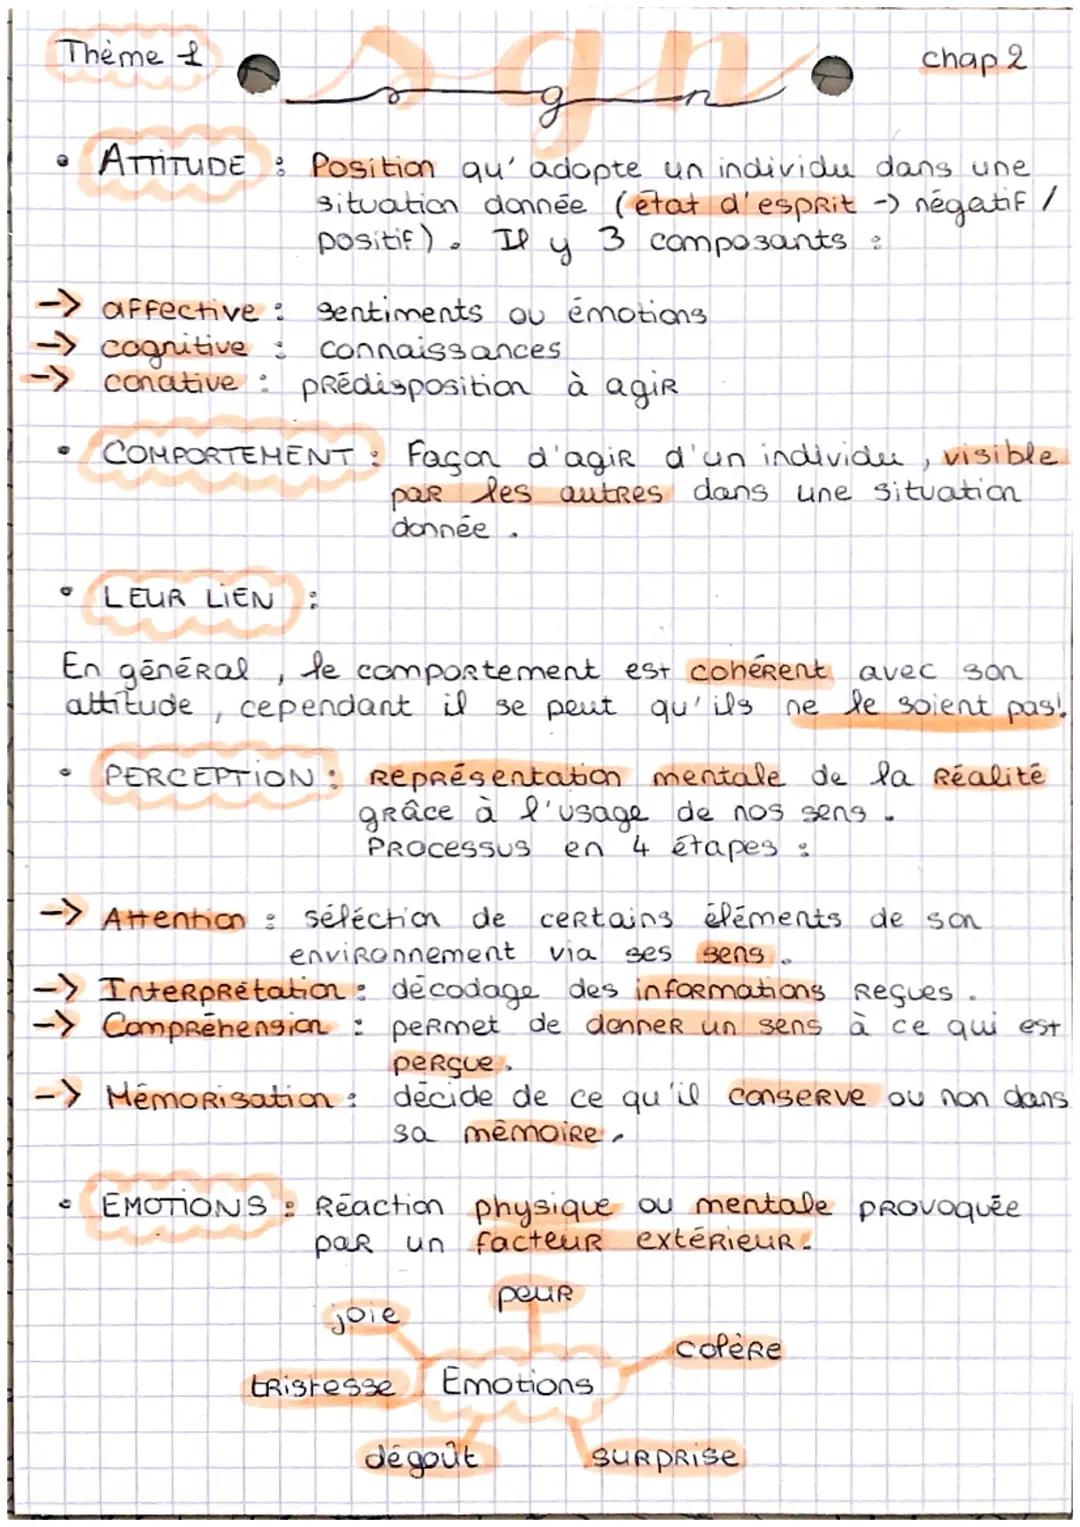 Thème 1
sgn
chap 2
• ATTITUDE : Position qu'adopte un individu dans une
situation donnée (état d'esprit -> négatif /
positif). Il y 3 composants :
-> affective : sentiments ou émotions
-> cognitive : connaissances
-> conative : prédisposition à agir
• COMPORTEMENT : Façon d'agir d'un individu, visible
par les autres dans une situation
donnée.
• LEUR LIEN :
En général, le comportement est cohérent avec son
attitude, cependant il se peut qu'ils ne le soient pas!
• PERCEPTION : Représentation mentale de la Réalité
grâce à l'usage de nos sens.
Processus en 4 étapes :
-> Attention : séléction de certains éléments de son
environnement via ses sens.
-> Interprétation : décodage des informations reçues.
-> Compréhension : permet de donner un sens à ce qui est
perçue.
-> Mémorisation : décide de ce qu'il conserve ou non dans
sa mémoire.
• EMOTIONS : Réaction physique ou mentale provoquée
par un facteur extérieur.
peur
joie
colère
tristesse
Emotions
dégoût
surprise